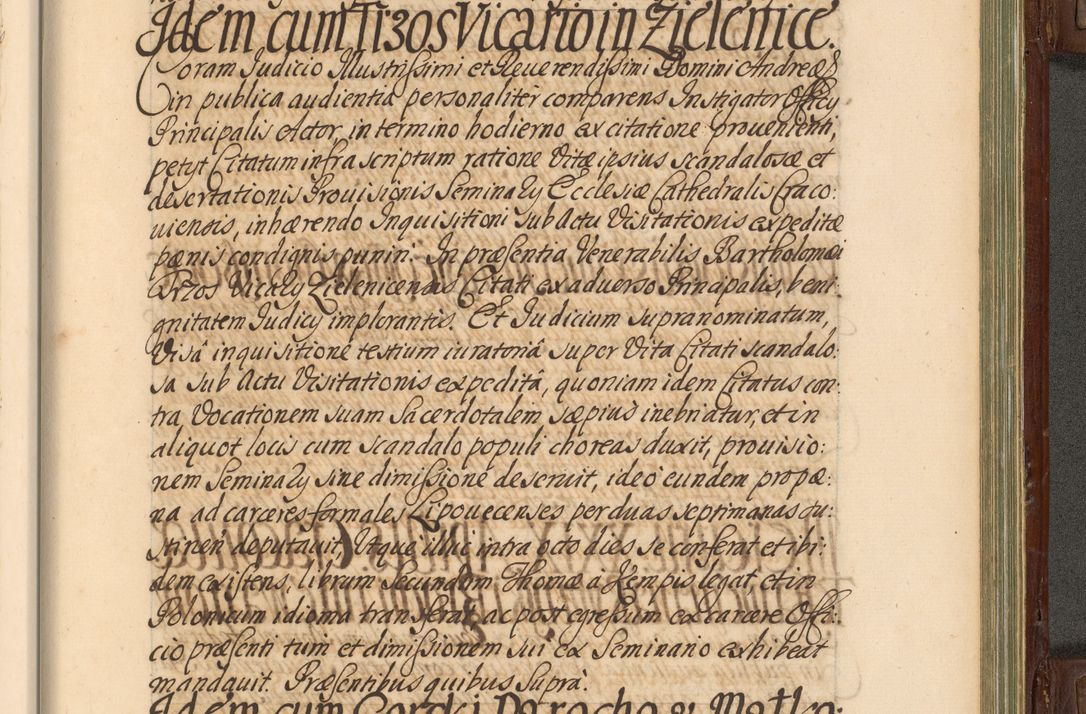 Idem cum Trzos Vicario in Zielenice.
Coram Iudicio Illustrissimi et Reuerendissimi Domini Andreæ &
in publica audientia personaliter comparens Instigator Officy
Principalis Actor, in termino hodierno ex citatione prouenienti,
petyt Citatum infra scriptum ratione Vitæ ipsius scandalosæ et
desertationis Prouisionis Seminary Ecclesiæ Cathedralis Craco:
uiensis, inhærendo Inquisitioni sub Actu Visitationis expeditæ
pænis condignis puniri. In præsentia Venerabilis Bartholomæi
Trzos Vicary Zielenicensis Citati ex aduerso Principalis, beni:
gnitatem Iudicy implorantis. Et Iudicium supranominatum,
Visâ inquisitione testium iuratoriâ super Vita Citati scandalo:
sa sub Actu Visitationis expeditâ, quoniam idem Citatus con:
tra Vocationem suam Sacerdotalem sæpius inebriatur, et in
aliquot locis cum scandalo populi choreas duxit, prouisio:
nem Seminary sine dimissione deseruit, ideò eundem pro pæ:
na ad carceres formales Lipouecenses per duas septimanas su:
stinen deputauit, Utque illuc intra octo dies se conferat et ibi:
dem existens, librum Secundum Thomæ a Kempis legat, et in
Polonicum idioma transferat, ac post egressum ex carcere Offi:
cio præsenti tum et dimissionem sui ex Seminario exhibeat
mandauit. Præsentibus quibus Suprà.
Idem cum Parocho &